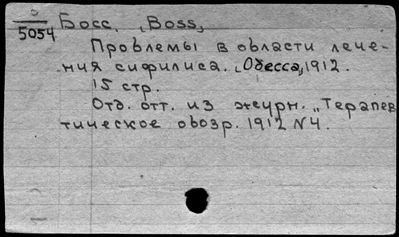 5
5054
Босс. (Boss)
Проблемы в области лече-
ния сифилиса. (Одесса), 1912.
15 стр.
Отд. отт. из журн. „Терапев
тическое обозр. 1912 N4.